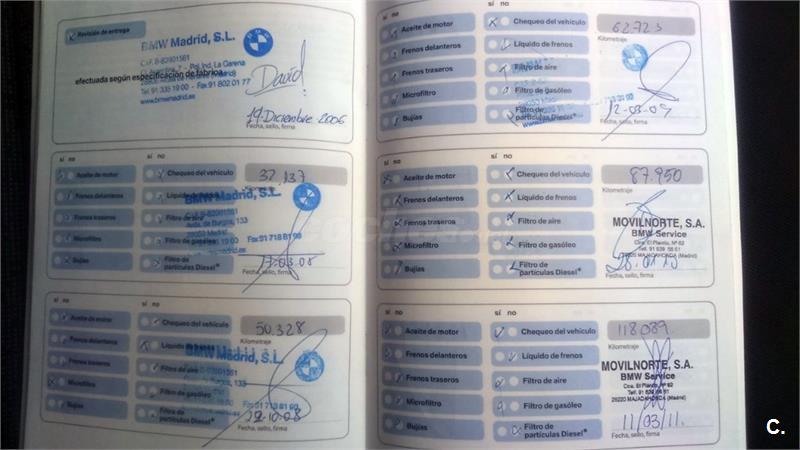 Revisión de entrega
BMW Madrid, S.L.
Pol. Ind. La Garena
efectuada según especificación de fábrica
Tel. 91 335 19 00 - Fax 91 802 01 77
www.bmwmadrid.es
David
19 Diciembre 2006
Fecha, sello, firma
sí no
Aceite de motor
Chequeo del vehículo
37.137
Frenos delanteros
Líquido de frenos
Kilometraje
BMW Madrid, S.L.
Avda. de Burgos, 133
Frenos traseros
Filtro de aire
28050 Madrid
Microfiltro
Filtro de gasóleo
Fax 91 718 81 99
Bujías
Filtro de
partículas Diesel*
17.03.08
Fecha, sello, firma
sí no
sí no
Aceite de motor
Chequeo del vehículo
50.328
Kilometraje
Frenos delanteros
Líquido de frenos
BMW Madrid, S.L.
Frenos traseros
Filtro de aire
Microfiltro
Filtro de gasóleo
Bujías
Filtro de
partículas Diesel*
Fecha, sello, firma
sí no
Aceite de motor
Chequeo del vehículo
62.723
Kilometraje
Frenos delanteros
Líquido de frenos
Frenos traseros
Filtro de aire
Microfiltro
Filtro de gasóleo
Bujías
Filtro de
partículas Diesel*
12-03-09
Fecha, sello, firma
sí no
sí no
Aceite de motor
Chequeo del vehículo
87.950
Kilometraje
Frenos delanteros
Líquido de frenos
Frenos traseros
Filtro de aire
MOVILNORTE, S.A.
BMW Service
Ctra. El Plantío, Nº 62
Microfiltro
Filtro de gasóleo
28220 MAJADAHONDA (Madrid)
Bujías
Filtro de
partículas Diesel*
Fecha, sello, firma
sí no
sí no
Aceite de motor
Chequeo del vehículo
118089
Kilometraje
Frenos delanteros
Líquido de frenos
MOVILNORTE, S.A.
BMW Service
Frenos traseros
Filtro de aire
Ctra. El Plantío, Nº 62
28220 MAJADAHONDA (Madrid)
Microfiltro
Filtro de gasóleo
Bujías
Filtro de
partículas Diesel*
11/03/11.
Fecha, sello, firma
C.